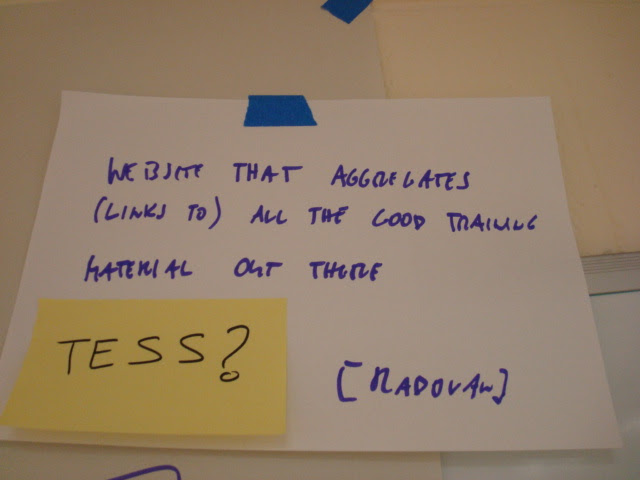 WEBSITE THAT AGGREGATES
(LINKS TO) ALL THE GOOD TRAINING
MATERIAL OUT THERE
TESS?
[RADOVAN]